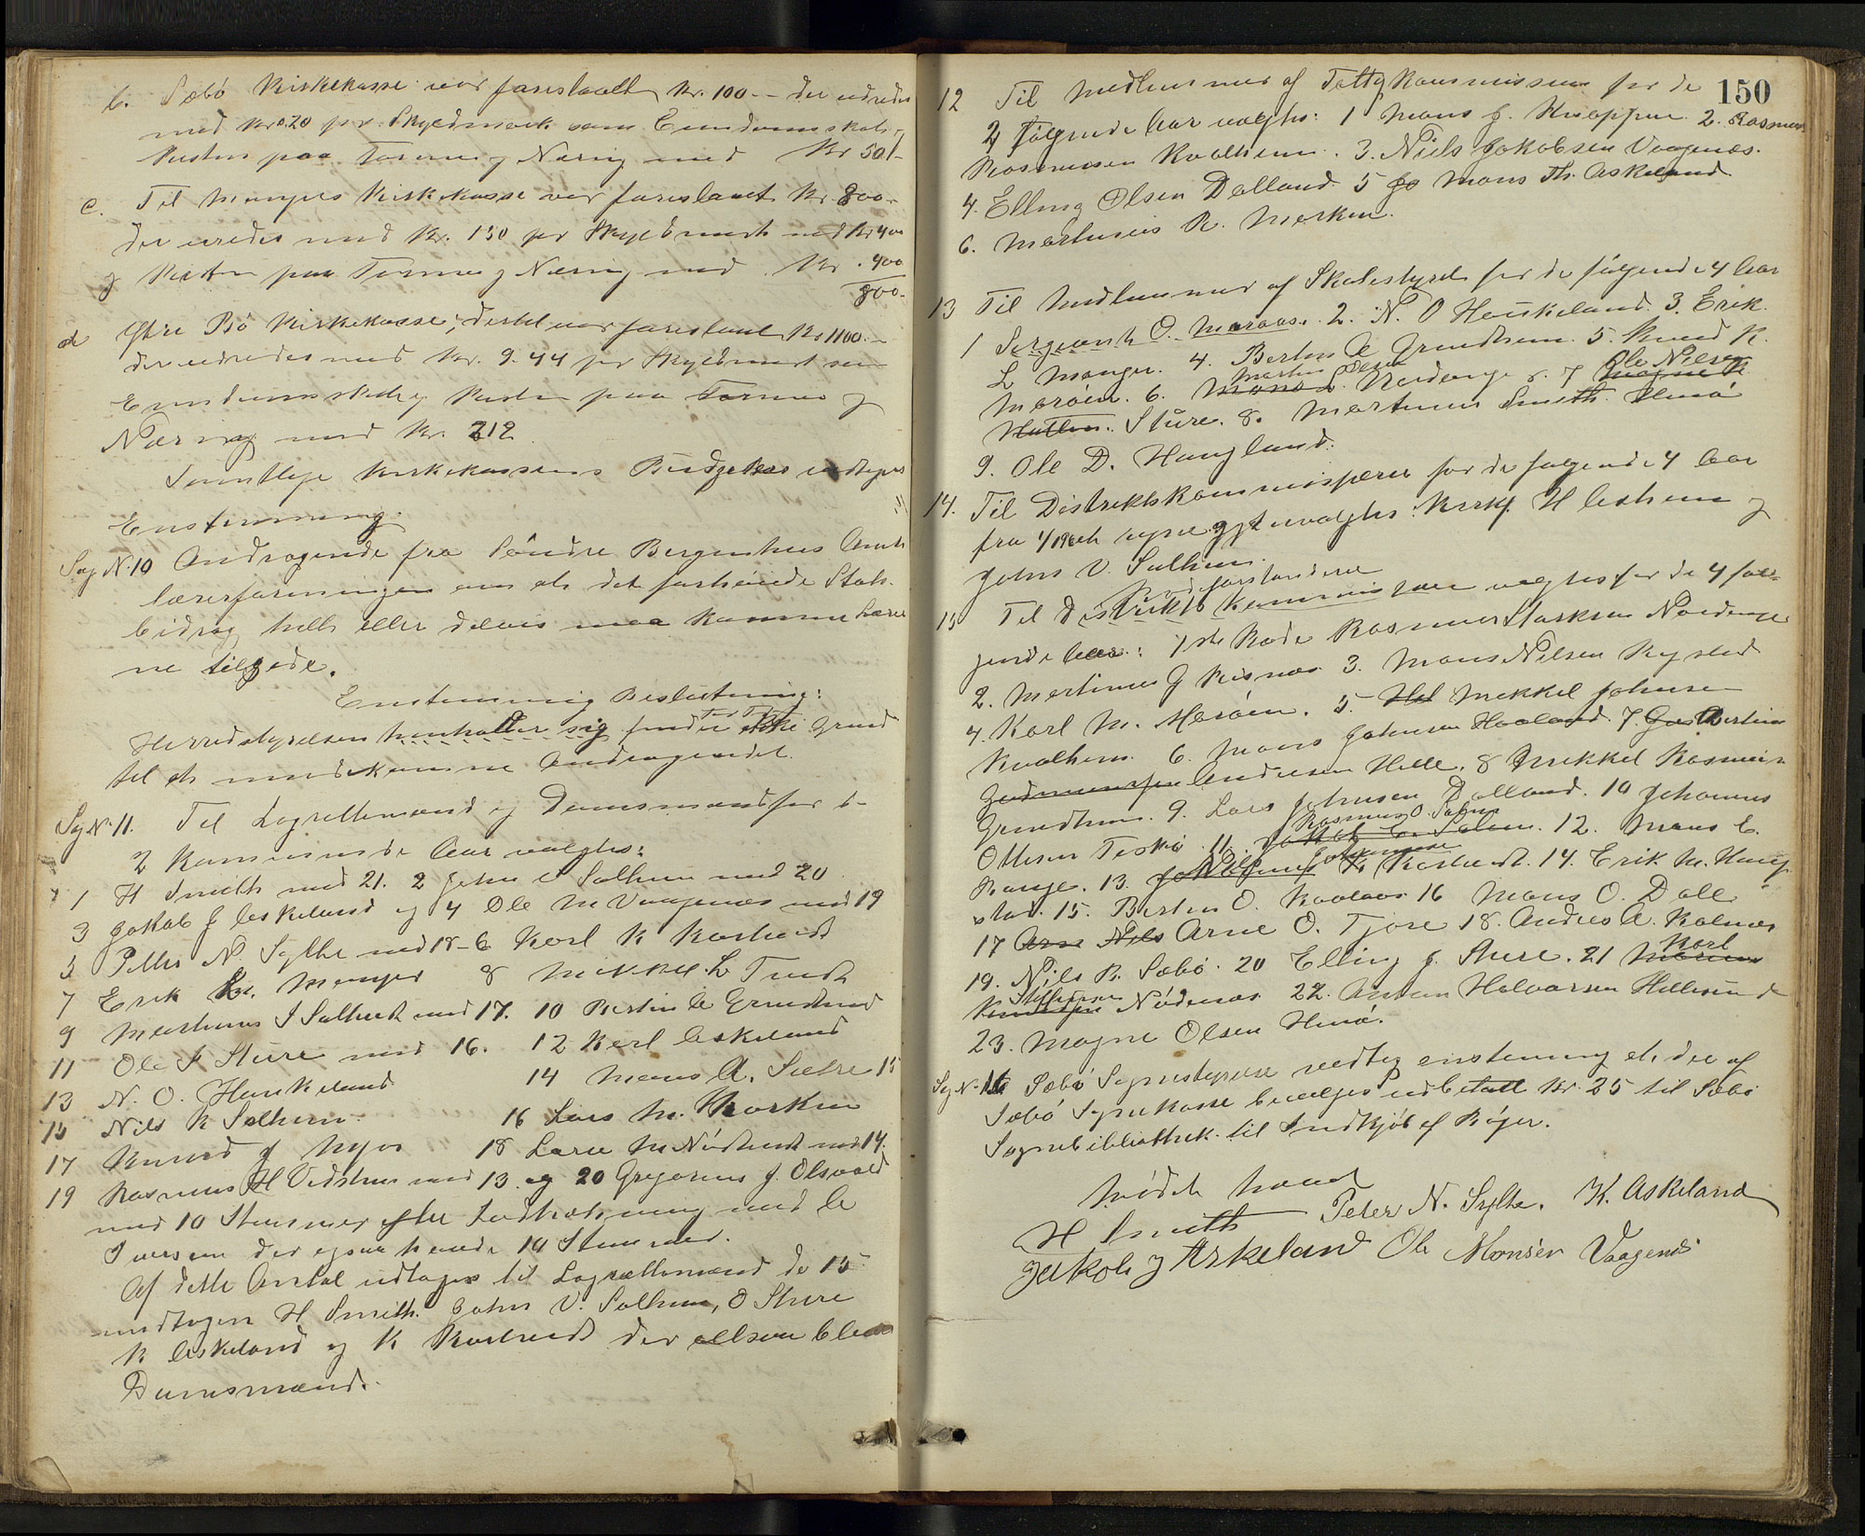 b. Sæbö Kirkekasse var foreslaaet Kr. 100.- der udredes
med Kr 0.20 pr. Skyldmark som Eiendomsskat og
Resten paa Formue og Næring med Kr 50.-
c. Til Mangers Kirkekasse var foreslaaet Kr. 800.-
der udredes med Kr. 1.50 pr Skyldmark med Kr 400
og Resten paa Formue og Næring med Kr. 400
800.-
d Ytre Bö Kirkekasse; dertil var foreslaaet Kr 1100.-
der udredes med Kr. 9.44 pr Skyldmark som
Eiendomsskat og Resten paa Formue og
Næring med Kr. 212
Samtlige Kirkekassens Budgetter vedtoges
Enstemmig.
Sag N. 10 Andragende fra Söndre Bergenhus Amts
lærerforening om at det forhöiede Stats-
bidrag helt eller delvis maa komme Lærer
ne tilgode.
Enstemmig Beslutning:
Herredstyrelsen henholder sig finder ikke Grund
til at imødekomme Andragendet.
Sag N. 11. Til Lagrettemænd og Domsmænd for de
2 kommende Aar valgtes:
1 H Smith med 21. 2 John V Solheim med 20
3 Jakob J Askeland og 4 Ole M Vaagenæs med 19
5 Peter N. Sylte med 18 - 6 Karl K Rostveit
7 Erik L. Manger 8 Mikkel L Tveit
9 Martinus J Solheim med 17. 10 Bertin A Grindheim
11 Ole J Sture med 16. 12 Karl Askeland
13 N. O. Henkeland 14 Mons A. Sætre 15
15 Nils R Solheim 16 Lars M. Marken
17 Knud J Myr 18 Lars M Nödtveit med 14.
19 Rasmus H Vedstrem med 13 og 20 Gregorius J. Olsvold
med 10 Stemmer efter Lodtrækning med A
Iversen der ogsaa havde 10 Stemmer.
Af dette Antal udtoges til Lagrettemænd de 15
undtagen H Smith, John V. Solheim, O Sture
K Askeland og K Rostveit der altsaa blev
Domsmænd.
150
12 Til Medlemmer af Fattigkommissionen for de
4 følgende Aar valgtes: 1 Mons J. Knappen 2. Rasmus
Rasmussen Kvalheim. 3. Niels Jakobsen Vaagenæs.
4. Elling Olsen Dalland. 5 Jo Mons Th. Askeland
6. Martinus R. Marken.
13 Til Medlemmer af Skolestyret for de følgende 4 Aar
1 Sergeant O. Maraas. 2. N. O Henkeland. 3. Erik
L Manger. 4. Bertin A Grindheim. 5. Knud K.
Maröen. 6. Mons Martin Olsen Nordanger. 7 Magne K Ole Nilsen
Hatten. Sture. 8. Martinus Smith. Hernö
9. Ole D. Haugland.
14. Til Distriktskommissærer for de følgende 4 Aar
fra valgtes: Kirkes. H Askeim og
John V. Solheim.
15 Til Distriktskommissær Rodeforstandere valgtes for de 4 føl-
gende Aar: 1ste Rode Rasmus Nordanger
2. Martinus J Risnæs 3. Mons Nilsen Rysted
4. Karl M. Maröen. 5. Hel Mikkel Johnsen
Kvalheim 6. Mons Johnsen Haaland. 7 Gu Bertin
Gudmundsen Andersen Helle. 8 Mikkel Rasmussen
Grindheim. 9. Lars Johnsen Dalland. 10 Johannes
Ottesen Toskö. 11. Jakob E. Solem. Rasmus O. Sæbö 12. Mons E.
Bange. 13. Johannes K Rostveit. 14. Erik M. Haug-
stad. 15. Bertin O. Kvalaas 16 Mons O. Dale
17 Arne Nils Arne O. Tjore 18. Andreas A. Kalnæs
19. Nils R. Sæbö. 20 Elling J. Sture. 21 Karl
Steffensen Nødenæs 22. Anton Halvorsen Hellesund
23. Magne Olsen Hernö.
Sag N. 16 Sæbö Sognestyrelse vedtog enstemmig at der af
Sæbö Sognekasse bevilges udbetalt Kr. 25 til Sæbö
Sognebibliothek til Indkjöb af Böger.
Mødet hævet
H Smith Peter N. Sylte. K. Askeland
Jakob J Askeland Ole Monsen Vaagenæs